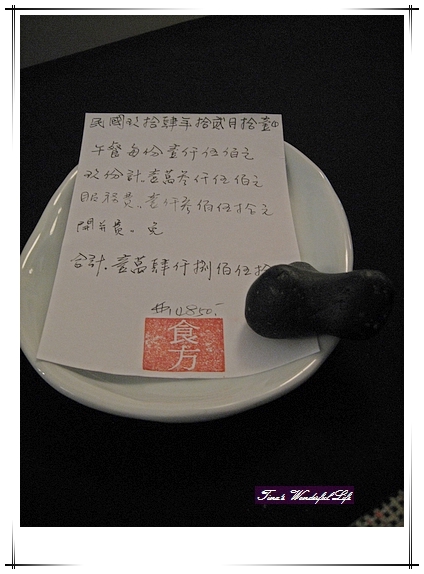 民國玖拾肆年拾貳月拾壹中
午餐每份壹仟伍佰元
玖份計.壹萬参仟伍佰元
服務費.壹仟参佰伍拾元
開瓶費.免
合計.壹萬肆仟捌佰伍拾
#14850.-
食方
Tina's Wonderful Life